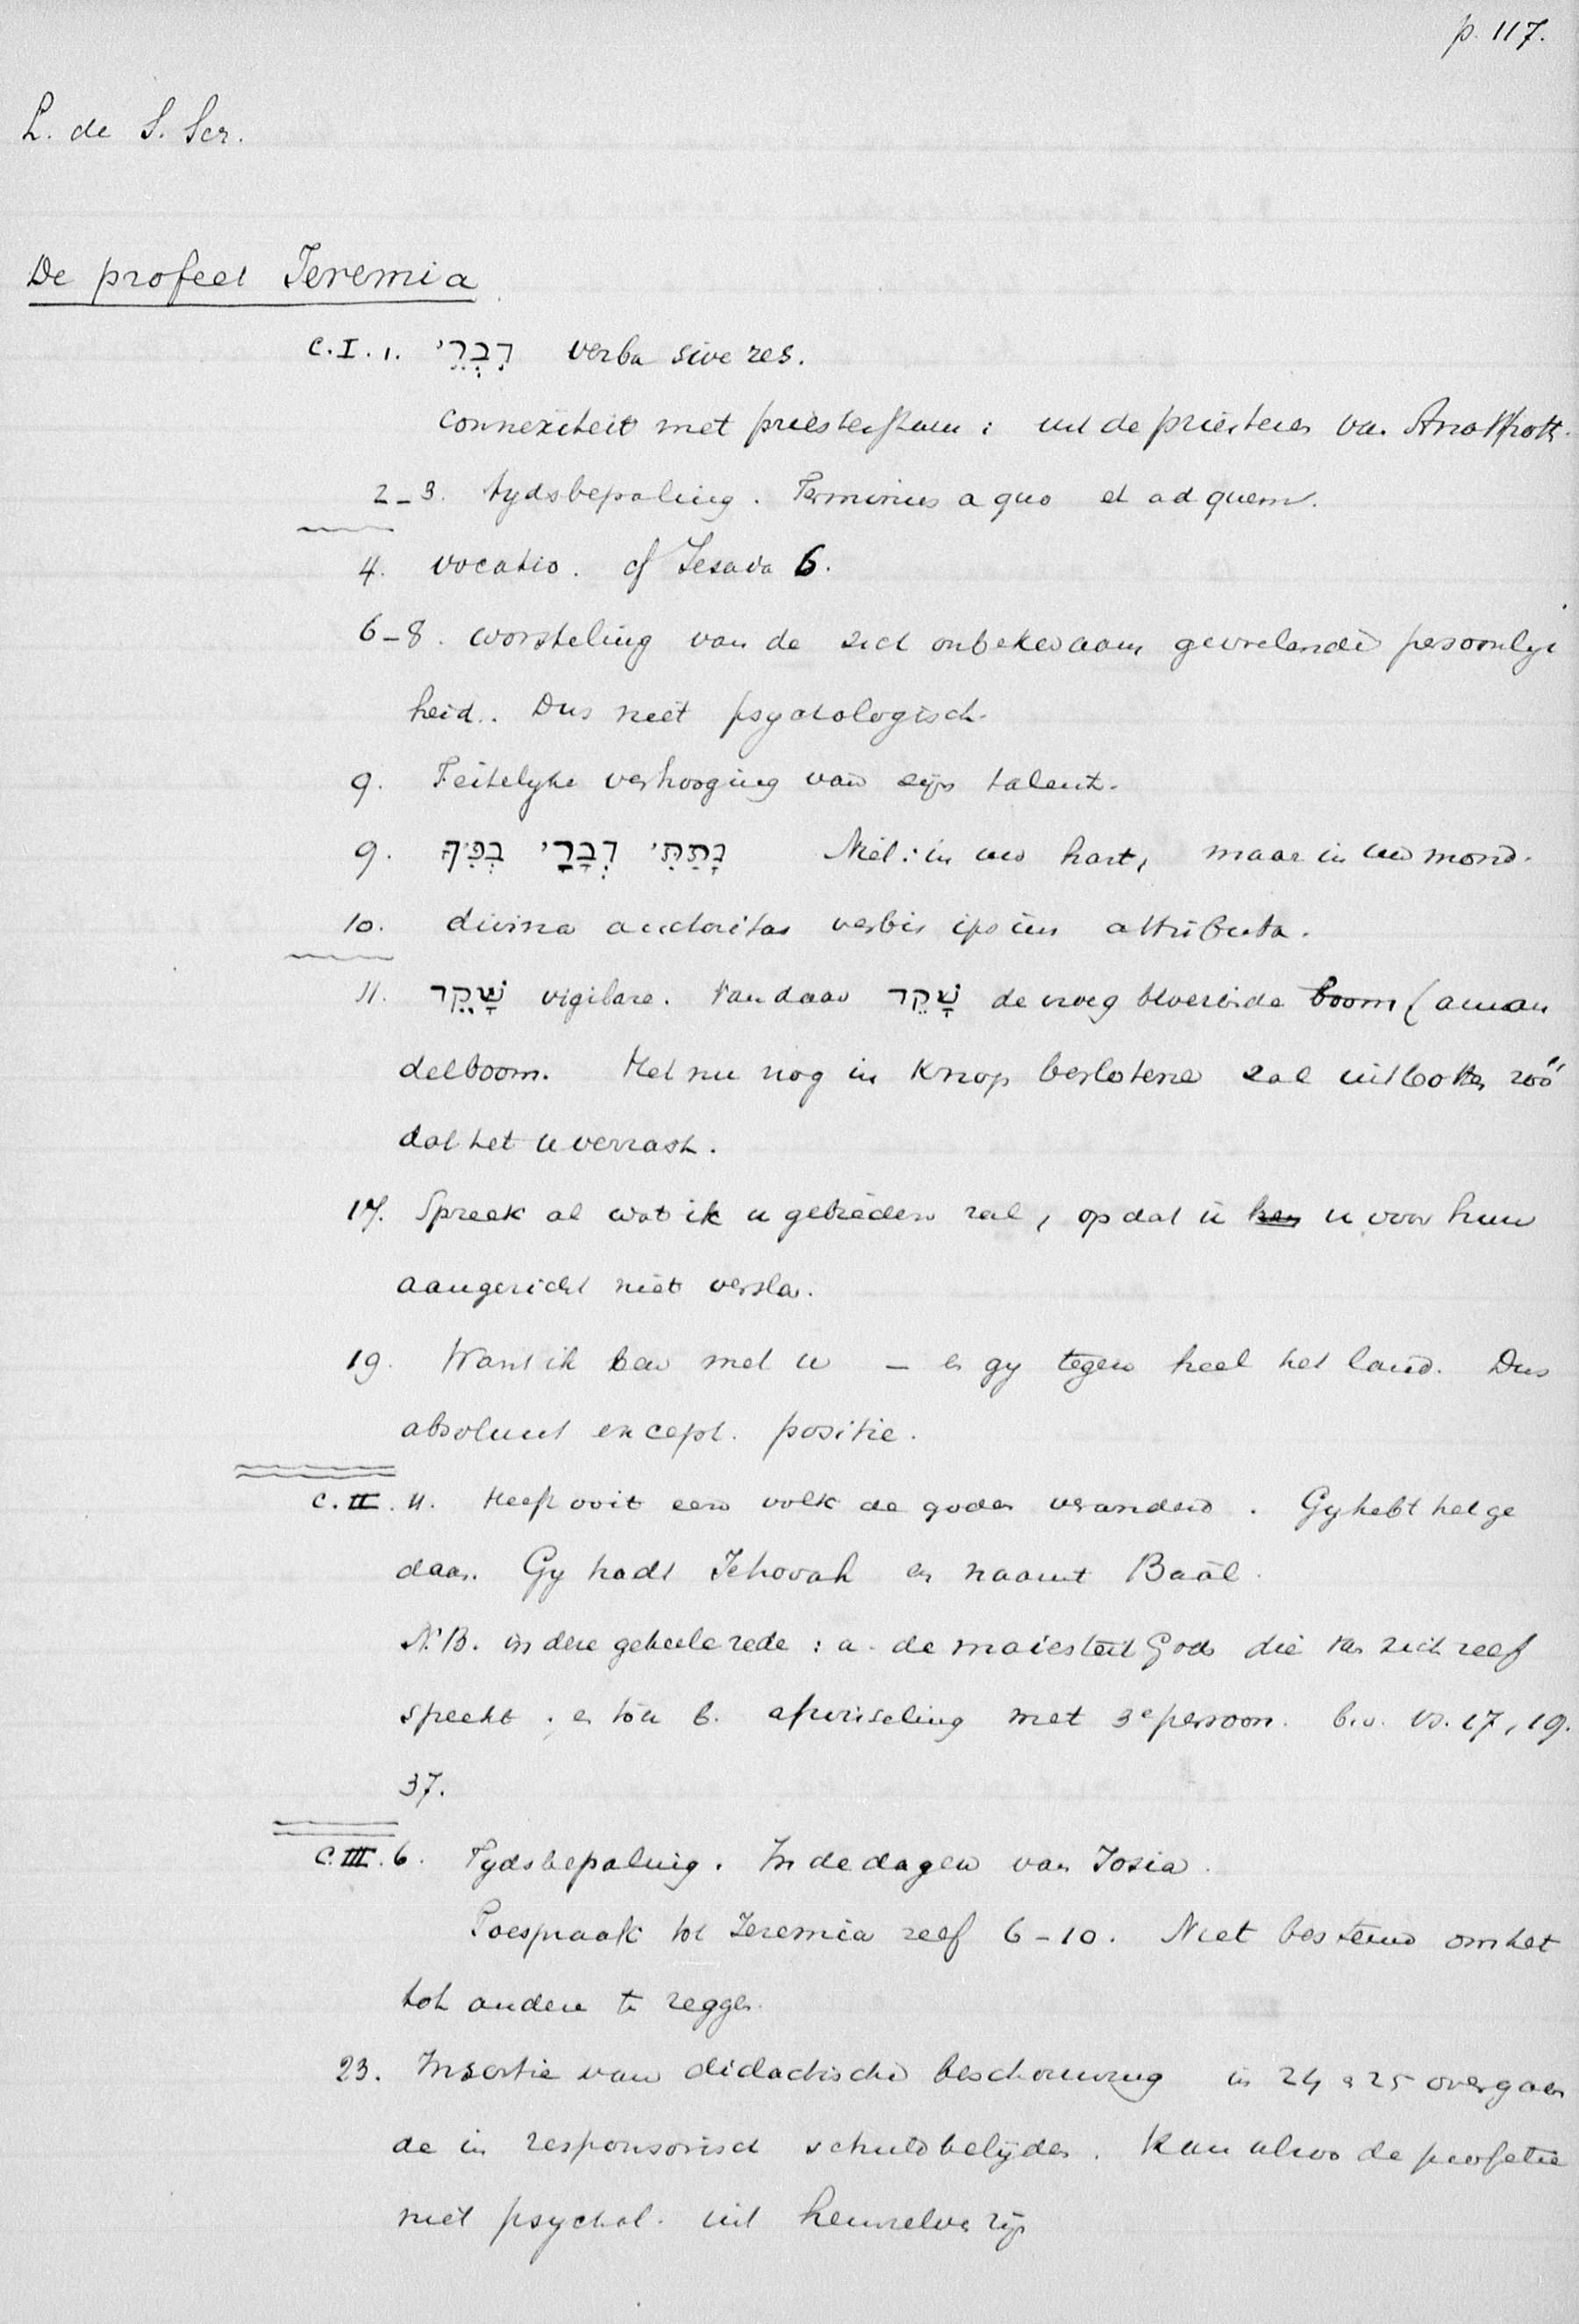 p. 117.
L. de S. Scr.
De profeet Jeremia
C. I. 1. דִּבְרֵי verba sive res.
Connexiteit met priesterstam: uit de priesters van Anathoth.
2-3. tydsbepaling. Terminus a quo et ad quem.
4. vocatio. cf Jesaia 6.
6-8. worsteling van de zich onbekwaam gevoelende persoonlyk
heid. Dus niet psychologisch.
9. Feitelyke verhooging van zyn talent.
9. נָתַתִּי דְבָרַי בְּפִיךָ Niet: in uw hart, maar in uw mond.
10. divina auctoritas verbis ipsius attributa.
11. שָׁקֵד vigilare. Vandaar שָׁקֵד de vroeg bloeiende boom (aman
delboom. Het nu nog in knop beslotene zal uitbotten zóó
dat het u verrast.
17. Spreek al wat ik u gebieden zal, opdat ik hen u voor hun
aangezicht niet versla.
19. Want ik ben met u - en gy tegen heel het land. Dus
absoluut except. positie.
C. II. 11. Heeft ooit een volk de goden veranderd. Gy hebt het ge
daan. Gy hadt Jehovah en naamt Baäl.
N.B. in deze geheele rede: a. de majesteit Gods die van zich zelf
spreekt. en toch b. afwisseling met 3e persoon. b.v. vs. 17, 19.
37.
C. III. 6. Tydsbepaling. In de dagen van Josia.
Toespraak tot Jeremia zelf 6-10. Niet bestemd om het
tot anderen te zeggen.
23. Insertie van didactische beschouwing in 24 en 25 overgaan
de in responsorisch schuldbelyden. Kan alzoo de profetie
niet psychol. uit henzelven zijn